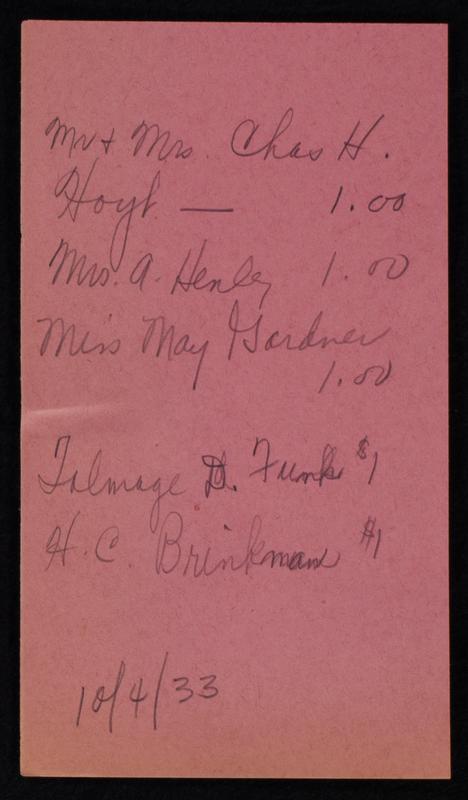 Mr + Mrs. Chas H.
Hoyt — 1.00
Mrs. A. Henley 1.00
Miss May Gardner
1.00
Talmage D. Funk $1
H. C. Brinkman $1
10/4/33